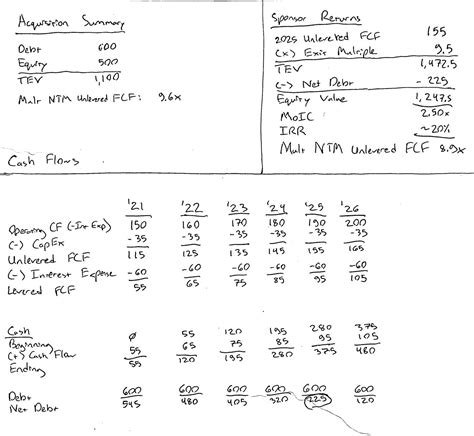 Acquisition Summary
Debt 600
Equity 500
TEV 1,100
Mult NTM Unlevered FCF: 9.6x
Sponsor Returns
2025 Unlevered FCF 155
(x) Exit Multiple 9.5
TEV 1,472.5
(-) Net Debt - 225
Equity Value 1,247.5
MoIC 2.50x
IRR ~20%
Mult NTM Unlevered FCF 8.9x
Cash Flows
'21 '22 '23 '24 '25 '26
Operating CF (-Int Exp) 150 160 170 180 190 200
(-) CapEx -35 -35 -35 -35 -35 -35
Unlevered FCF 115 125 135 145 155 165
(-) Interest Expense -60 -60 -60 -60 -60 -60
Levered FCF 55 65 75 85 95 105
Cash
Beginning ∅ 55 120 195 280 375
(+) Cash Flow 55 65 75 85 95 105
Ending 55 120 195 280 375 480
Debt 600 600 600 600 600 600
Net Debt 545 480 405 320 225 120